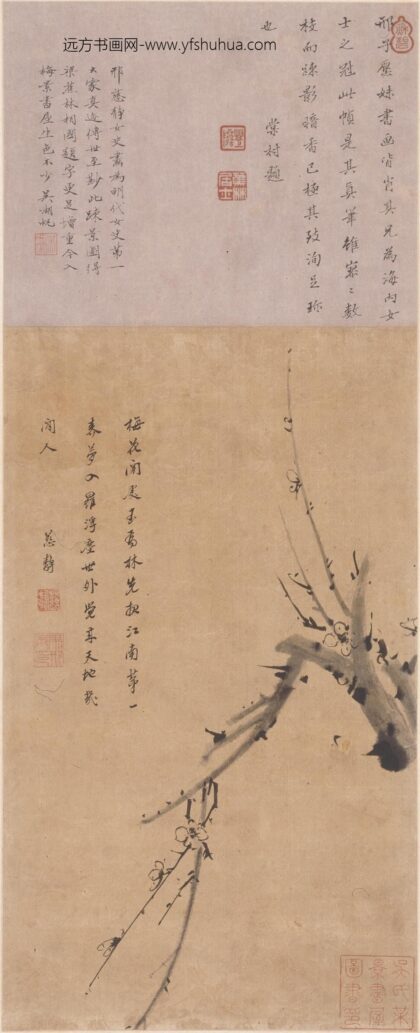 远方书画网--www.yfshuhua.com
邢子愿妹書画皆肖其兄為海内女
士之冠此幀是其真筆雖寥寥數
枝而疎影暗香已極其致洵足珎
也
棠村題
邢慈静女史畫為明代女史第一
大家真迹傳世至尠此疎景圖得
梁蕉林相國題字更足增重今入
梅景書屋生色不少吴湖帆
梅花開遍玉為林先報江南第一
春夢入羅浮塵世外覺来天地幾
閒人
慈静
吴氏某
景書屋
圖書印